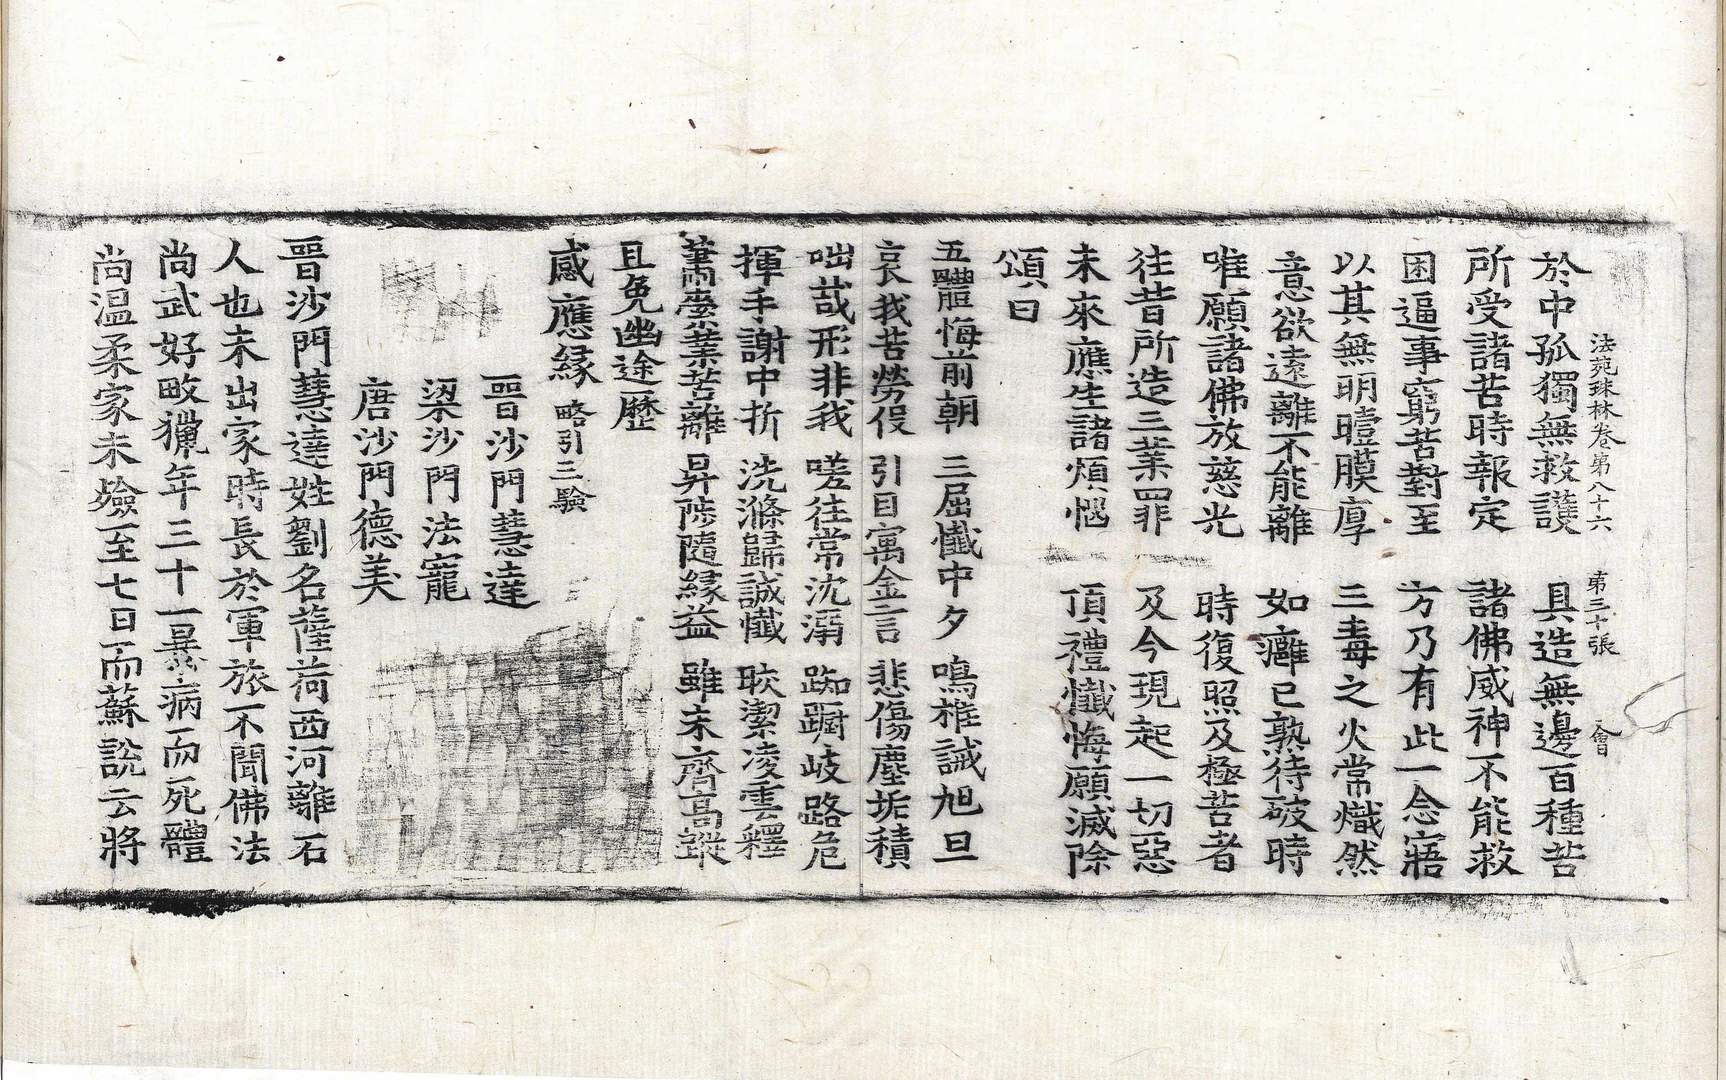 法苑珠林卷第八十六 第三十張 會
於中孤獨無救護 具造無邊百種苦
所受諸苦時報定 諸佛威神不能救
困逼事窮苦對至 方乃有此一念寤
以其無明曀膜厚 三毒之火常熾然
意欲遠離不能離 如癰已熟待破時
唯願諸佛放慈光 時復照及極苦者
往昔所造三業罪 及今現起一切惡
未來應生諸煩惱 頂禮懺悔願滅除
頌曰
五體悔前朝 三屈懺中夕 鳴椎誡旭旦
哀我苦勞役 引目寓金言 悲傷塵垢積
咄哉形非我 嗟往常沈溺 踟躕岐路危
揮手謝中折 洗滌歸誠懺 皎潔凌雲釋
業苦離 昇陟隨緣益 雖未齊高蹤
且免幽途歷
感應緣 略引三驗
晉沙門慧達
梁沙門法寵
唐沙門德美
晉沙門慧達姓劉名薩荷西河離石
人也未出家時長於軍旅不聞佛法
尚武好畋獵年三十一暴病而死體
尚温柔家未殮至七日而蘇說云將